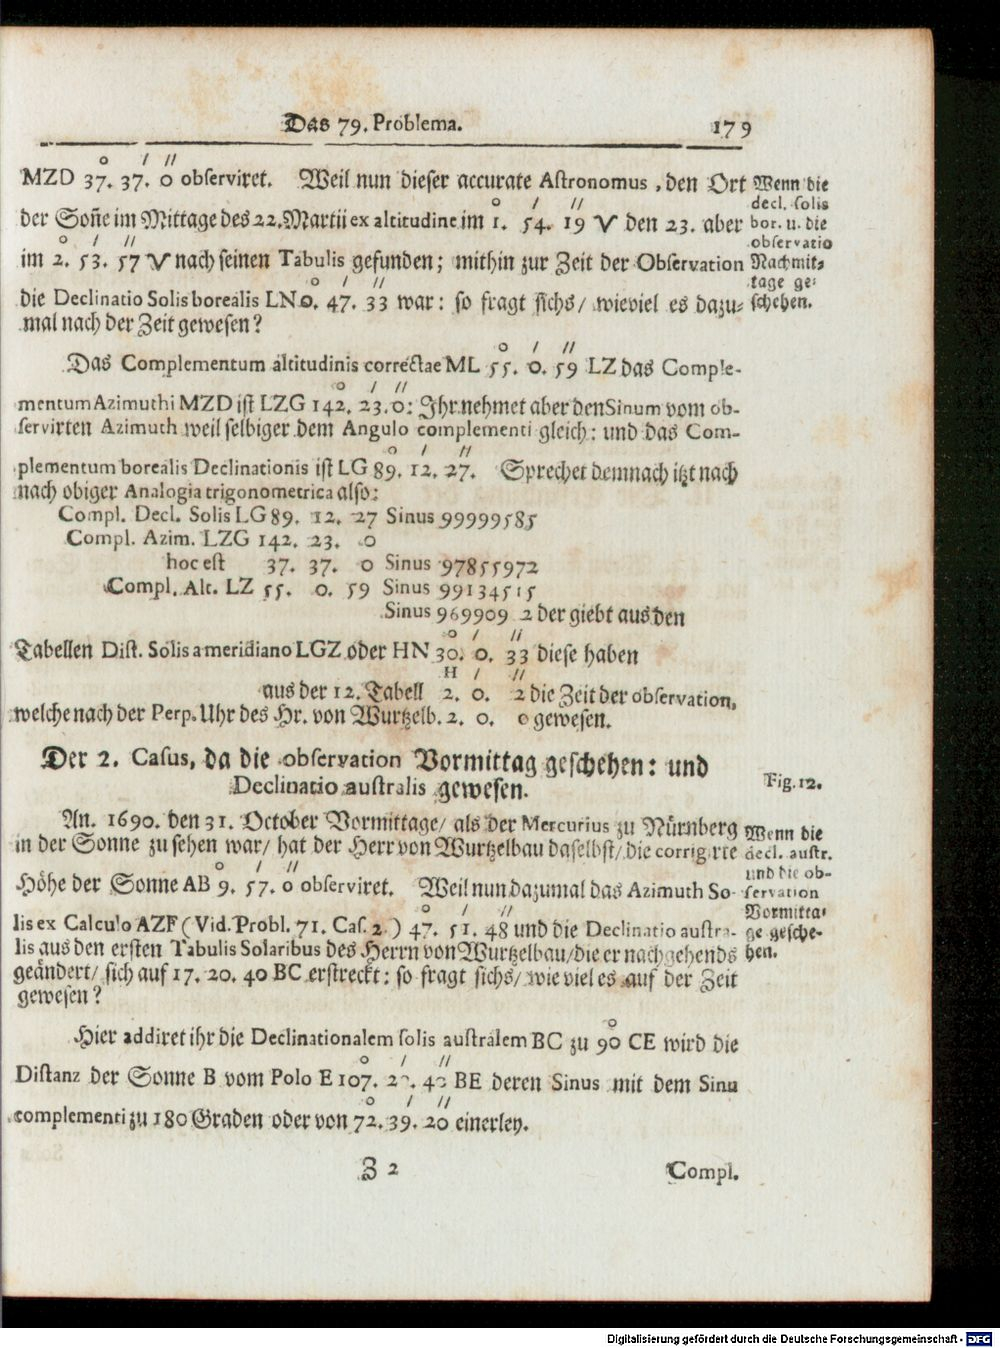 Das 79. Problema. 179
o / //
MZD 37. 37. 0 observiret. Weil nun dieser accurate Astronomus, den Ort
o / //
der Soñe im Mittage des 22. Martii ex altitudine im 1. 54. 19 V den 23. aber
o / //
im 2. 53. 57 V nach seinen Tabulis gefunden; mithin zur Zeit der Observation
o / //
die Declinatio Solis borealis LN 0. 47. 33 war: so fragt sichs/ wieviel es dazu-
mal nach der Zeit gewesen?
Wenn die
decl. solis
bor. u. die
observatio
Nachmit-
tage ge-
schehen.
o / //
Das Complementum altitudinis correctae ML 55. 0. 59 LZ das Comple-
o / //
mentum Azimuthi MZD ist LZG 142. 23. 0: Ihr nehmet aber den Sinum vom ob-
servirten Azimuth weil selbiger dem Angulo complementi gleich: und das Com-
o / //
plementum borealis Declinationis ist LG 89. 12. 27. Sprechet demnach itzt nach
nach obiger Analogia trigonometrica also:
Compl. Decl. Solis LG 89. 12. 27 Sinus 99999585
Compl. Azim. LZG 142. 23. 0
hoc est 37. 37. 0 Sinus 97855972
Compl. Alt. LZ 55. 0. 59 Sinus 99134515
Sinus 969909 2 der giebt aus den
o / //
Tabellen Dist. Solis a meridiano LGZ oder HN 30. 0. 33 diese haben
H / //
aus der 12. Tabell 2. 0. 2 die Zeit der observation,
welche nach der Perp. Uhr des Hr. von Wurtzelb. 2. 0. 0 gewesen.
Der 2. Casus, da die observation Vormittag geschehen: und
Declinatio australis gewesen.
Fig. 12.
An. 1690. den 31. October Vormittage/ als der Mercurius zu Nürnberg
in der Sonne zu sehen war/ hat der Herr von Wurtzelbau daselbst/ die corrigirte
o / //
Höhe der Sonne AB 9. 57. 0 observiret. Weil nun dazumal das Azimuth So-
o / //
lis ex Calculo AZF (Vid. Probl. 71. Cas. 2.) 47. 51. 48 und die Declinatio austra-
lis aus den ersten Tabulis Solaribus des Herrn von Wurtzelbau/ die er nachgehends
geändert/ sich auf 17. 20. 40 BC erstreckt: so fragt sichs/ wie viel es auf der Zeit
gewesen?
Wenn die
decl. austr.
und die ob-
servation
Vormitta-
ge gesche-
hen.
o
Hier addiret ihr die Declinationalem solis australem BC zu 90 CE wird die
o / //
Distanz der Sonne B vom Polo E 107. 20. 40 BE deren Sinus mit dem Sinu
o / //
complementi zu 180 Graden oder von 72. 39. 20 einerley.
Z 2 Compl.
Digitalisierung gefördert durch die Deutsche Forschungsgemeinschaft - DFG